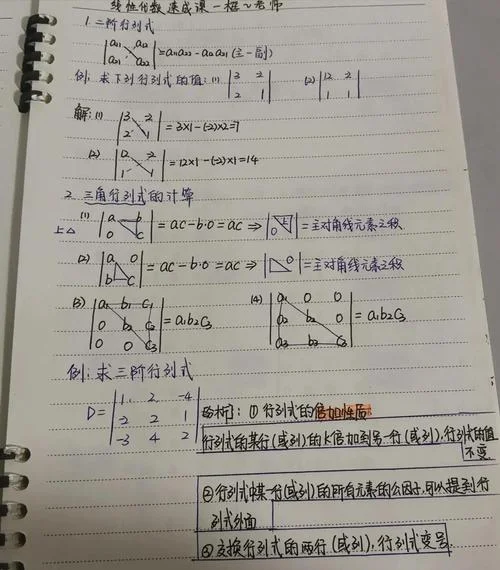 线性代数速成课一框~老师
1.二阶行列式
|a11 a12
a21 a22| = a11a22 - a12a21 (主-副)
例: 求下列行列式的值: (1) |3 2
2 1| (2) |12 2
1 1|
解: (1) |3 -2
2 1| = 3×1-(-2)×2=7
(2) |12 -2
1 1| = 12×1-(-2)×1=14
2. 三角行列式的计算
上△ (1) |a b
0 c| = ac-b·0=ac ⇒ = 主对角线元素之积
(2) |a 0
b c| = ac-b·0=ac ⇒ = 主对角线元素之积
(3) |a1 b1 c1
0 b2 c2
0 0 c3| = a1b2c3 (4) |a1 0 0
a2 b2 0
a3 b3 c3| = a1b2c3
例: 求三阶行列式
D = |1 2 -4
-2 2 1
-3 4 2|
①行列式的倍加性质
行列式的某行(或列)的K倍加到另一行(或列),行列式的值
不变.
②行列式中某一行(或列)的所有元素的公因子,可以提到行
列式外面
③交换行列式的两行(或列),行列式变号.